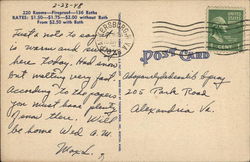 2-23-48
220 Rooms—Fireproof—136 Baths
RATES: $1.50—$1.75—$2.00 without Bath
From $2.50 with Bath
Just a note to say it
is warm and
here today. Had snow
but melting very fast
According to the papers
you must have plenty
down there. Will
be home Wed a.m.
POST CARD
205 Park Road
Alexandria Va.